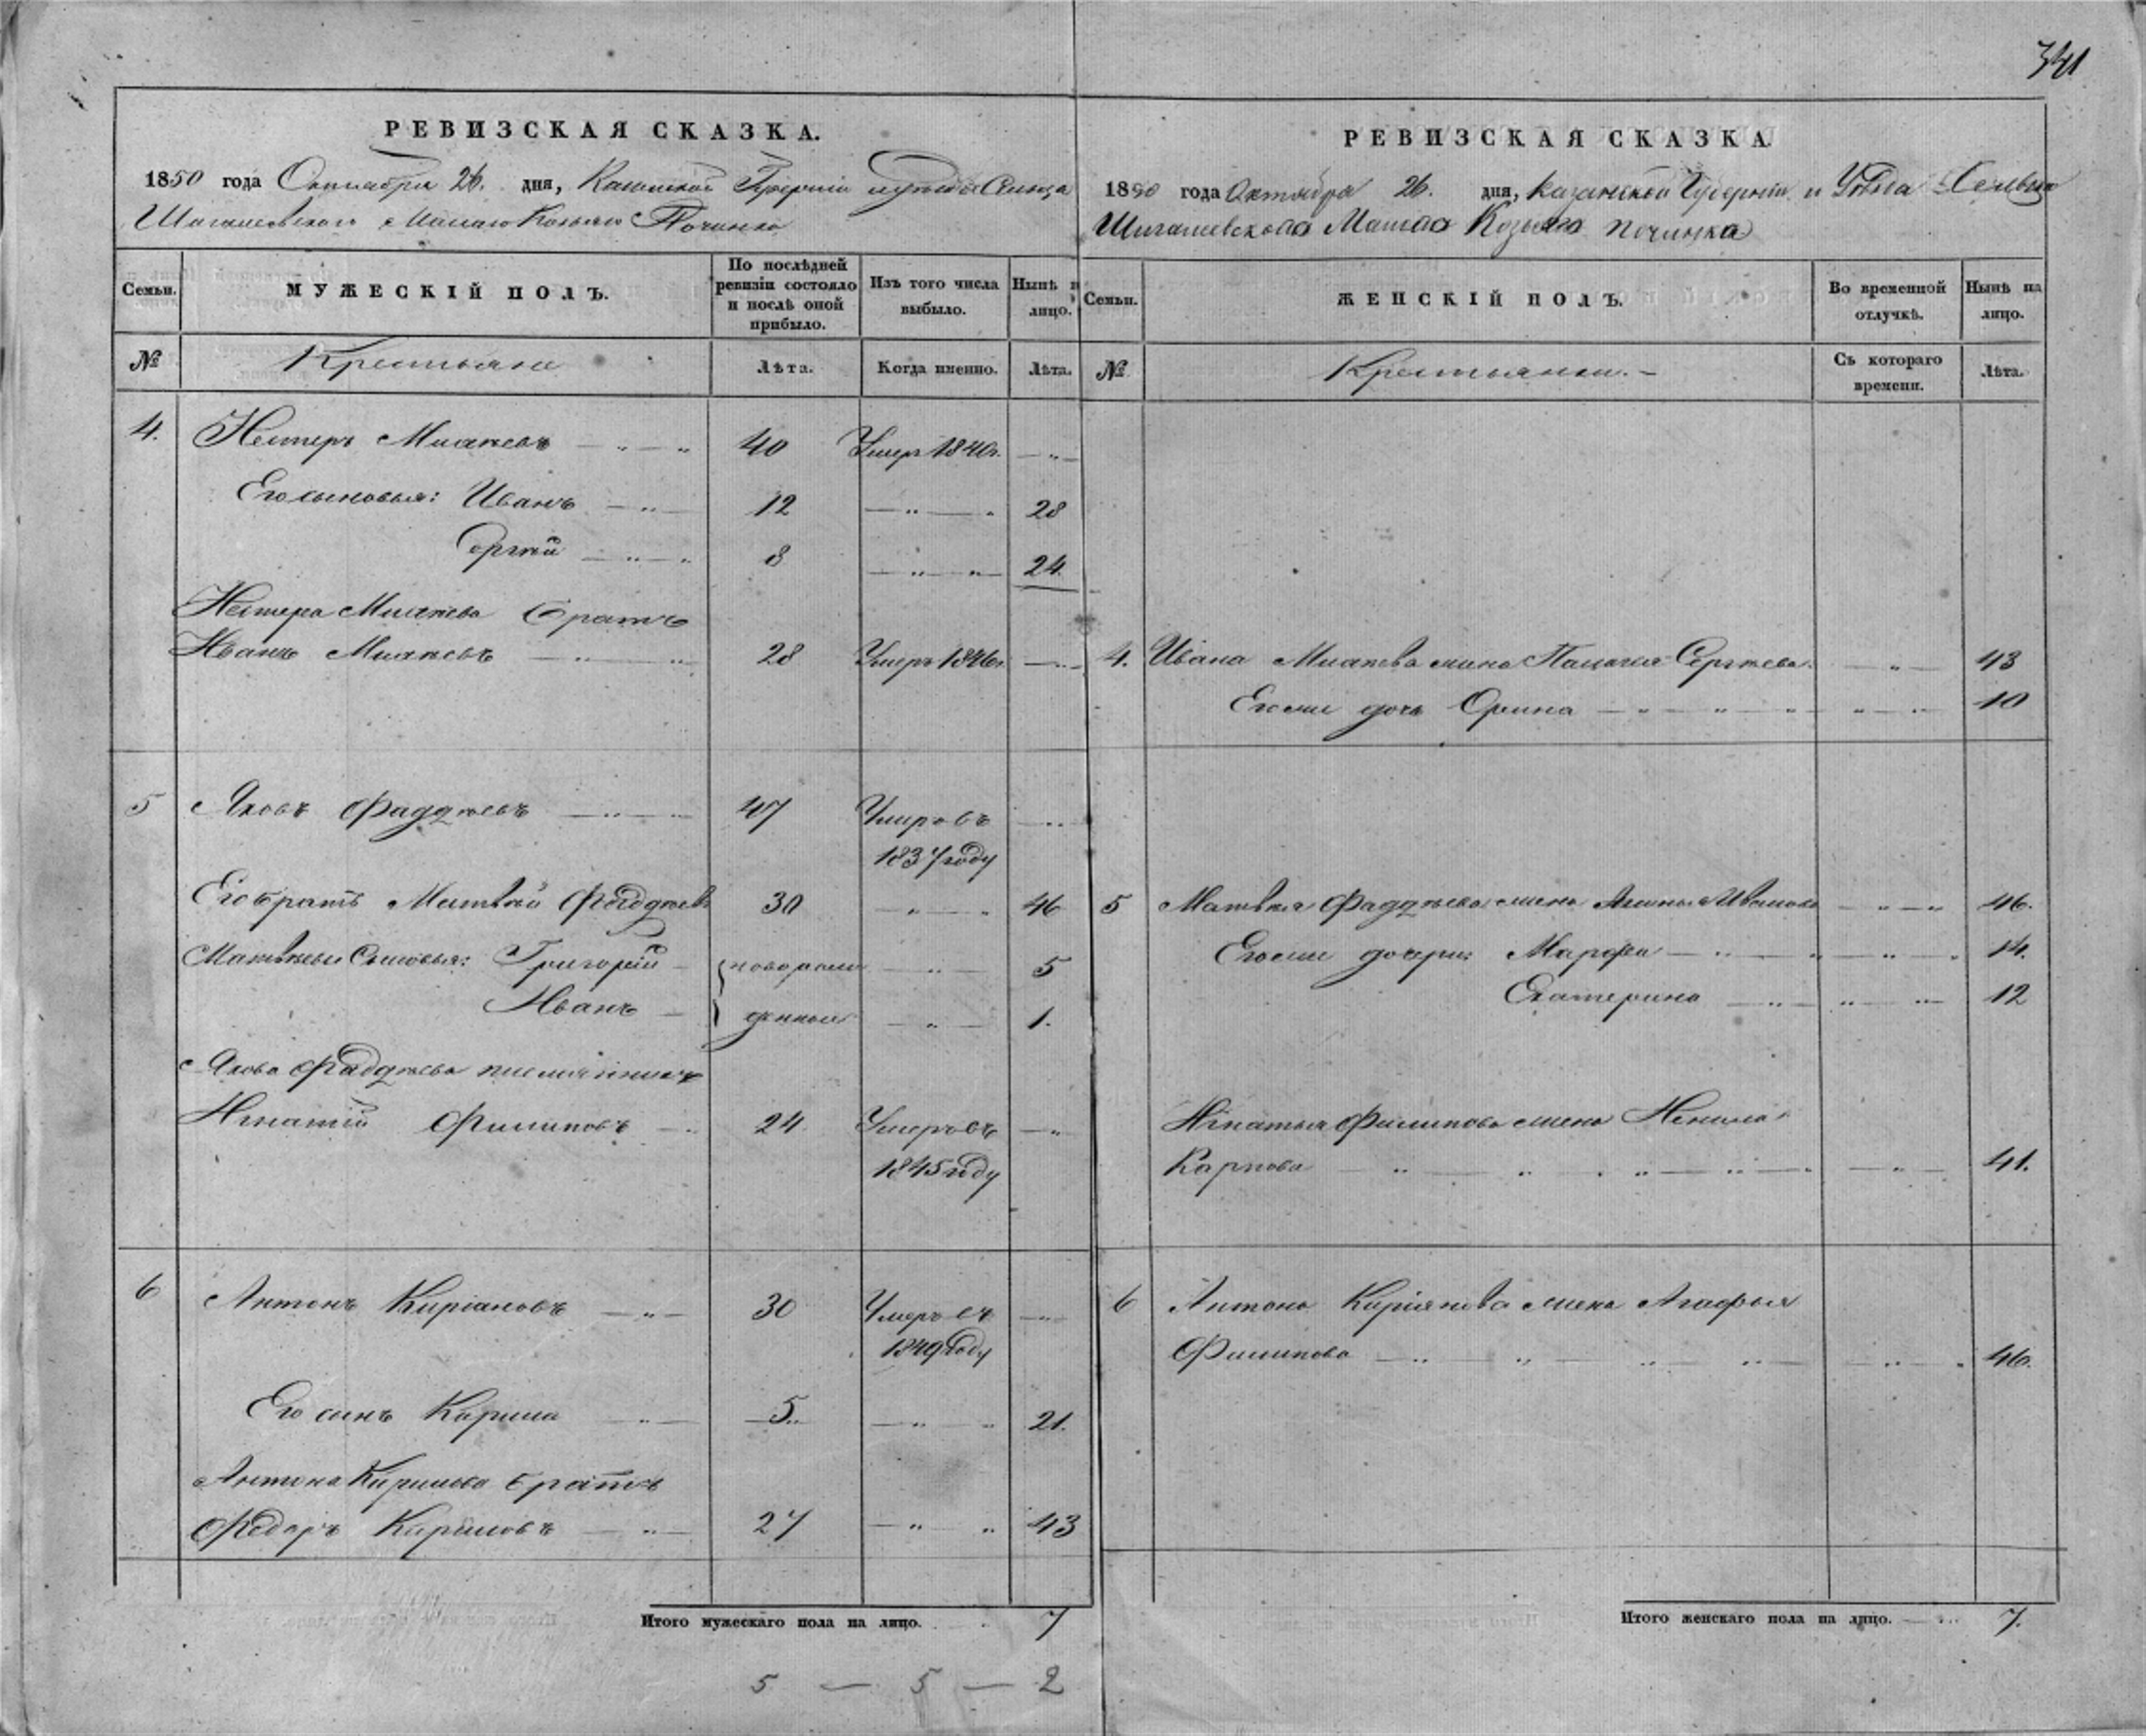 341
РЕВИЗСКАЯ СКАЗКА.
1850 года Октября 26. дня, Казанской Губерніи и уезда Сельца
Шигалеевскаго Малаго Козьяго Починка
Семьи.
МУЖЕСКІЙ ПОЛЪ.
По послѣдней ревизіи состояло и послѣ оной прибыло.
Изъ того числа выбыло.
Нынѣ на лицо.
№
Крестьяне
Лѣта.
Когда именно.
Лѣта.
4. Нестеръ — „ — „ 40 Умеръ 1840г. — „ —
Его сыновья: Иванъ — „ — 12 — „ — „ 28
Сергѣй — „ — „ 8 — „ — „ — 24.
Нестера братъ
Иванъ — „ — „ 28 Умеръ 1846г. — „ —
5 Яковъ Фаддѣевъ — „ — „ 47 Умеръ въ — „
1837 году
Его братъ Матвѣй Фаддѣевъ 30 — „ — „ 46
Матвѣевы Сыновья: Григорій — новорож — „ — 5
Иванъ — денные — „ — 1.
Якова Фаддѣева племянникъ
Игнатій Филиповъ — „ 24 Умеръ въ — „
1845 году
6 Антонъ Киріановъ — „ — 30 Умеръ въ — „
1849 году
Его сынъ Кирила — „ — 5. — „ — „ 21.
Антона Кирилова братъ
Федоръ Кириловъ — „ — 27 — „ — „ 43
Итого мужескаго пола на лицо. 7
5 — 5 — 2
РЕВИЗСКАЯ СКАЗКА.
1850 года Октября 26. дня, Казанской Губерніи и Уѣзда Сельца
Шигалеевскаго Малаго Козьяго починка
Семьи.
ЖЕНСКІЙ ПОЛЪ.
Во временной отлучкѣ.
Нынѣ на лицо.
№
Крестьянки. —
Съ котораго времени.
Лѣта.
4. Ивана жена Сергѣева. — „ — 43
Его же дочь Орина — „ — „ — „ — „ — „ 10
5 Матвѣя Фаддѣева жена Иванова — „ — „ 46.
Его же дочери: Марфа — „ — „ — „ — „ 14.
Екатерина — „ — „ — „ — 12
Игнатья Филипова жена Ненила
Карпова „ — „ „ — „ — „ — „ — 41.
6 Антона Киріянова жена Агафья
Филипова — „ — „ — „ „ — „ — „ 46.
Итого женскаго пола на лицо. — „ 7.